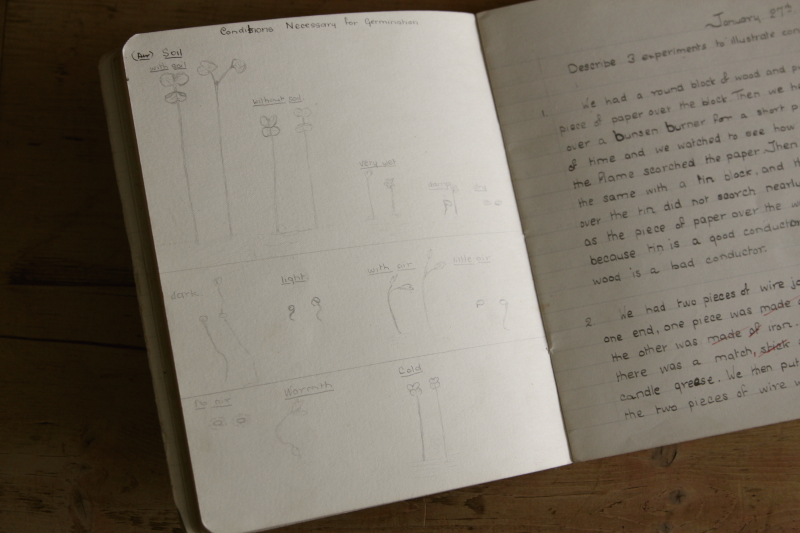 Conditions Necessary for Germination
Soil
with soil
without soil
very wet
dark
light
with air
little air
no air
Warmth
Cold
January 27th
Describe 3 experiments to illustrate con
1. We had a round block of wood and pu
piece of paper over the block Then we he
over a bunsen burner for a short p
of time and we watched to see how
the flame scorched the paper. Then
the same with a tin block, and th
over the tin did not scorch nearly
as the piece of paper over the w
because tin is a good conductor
wood is a bad conductor.
2 We had two pieces of wire jo
one end, one piece was made
the other was made of iron.
there was a match, stick
candle grease. We then put
the two pieces of wire w